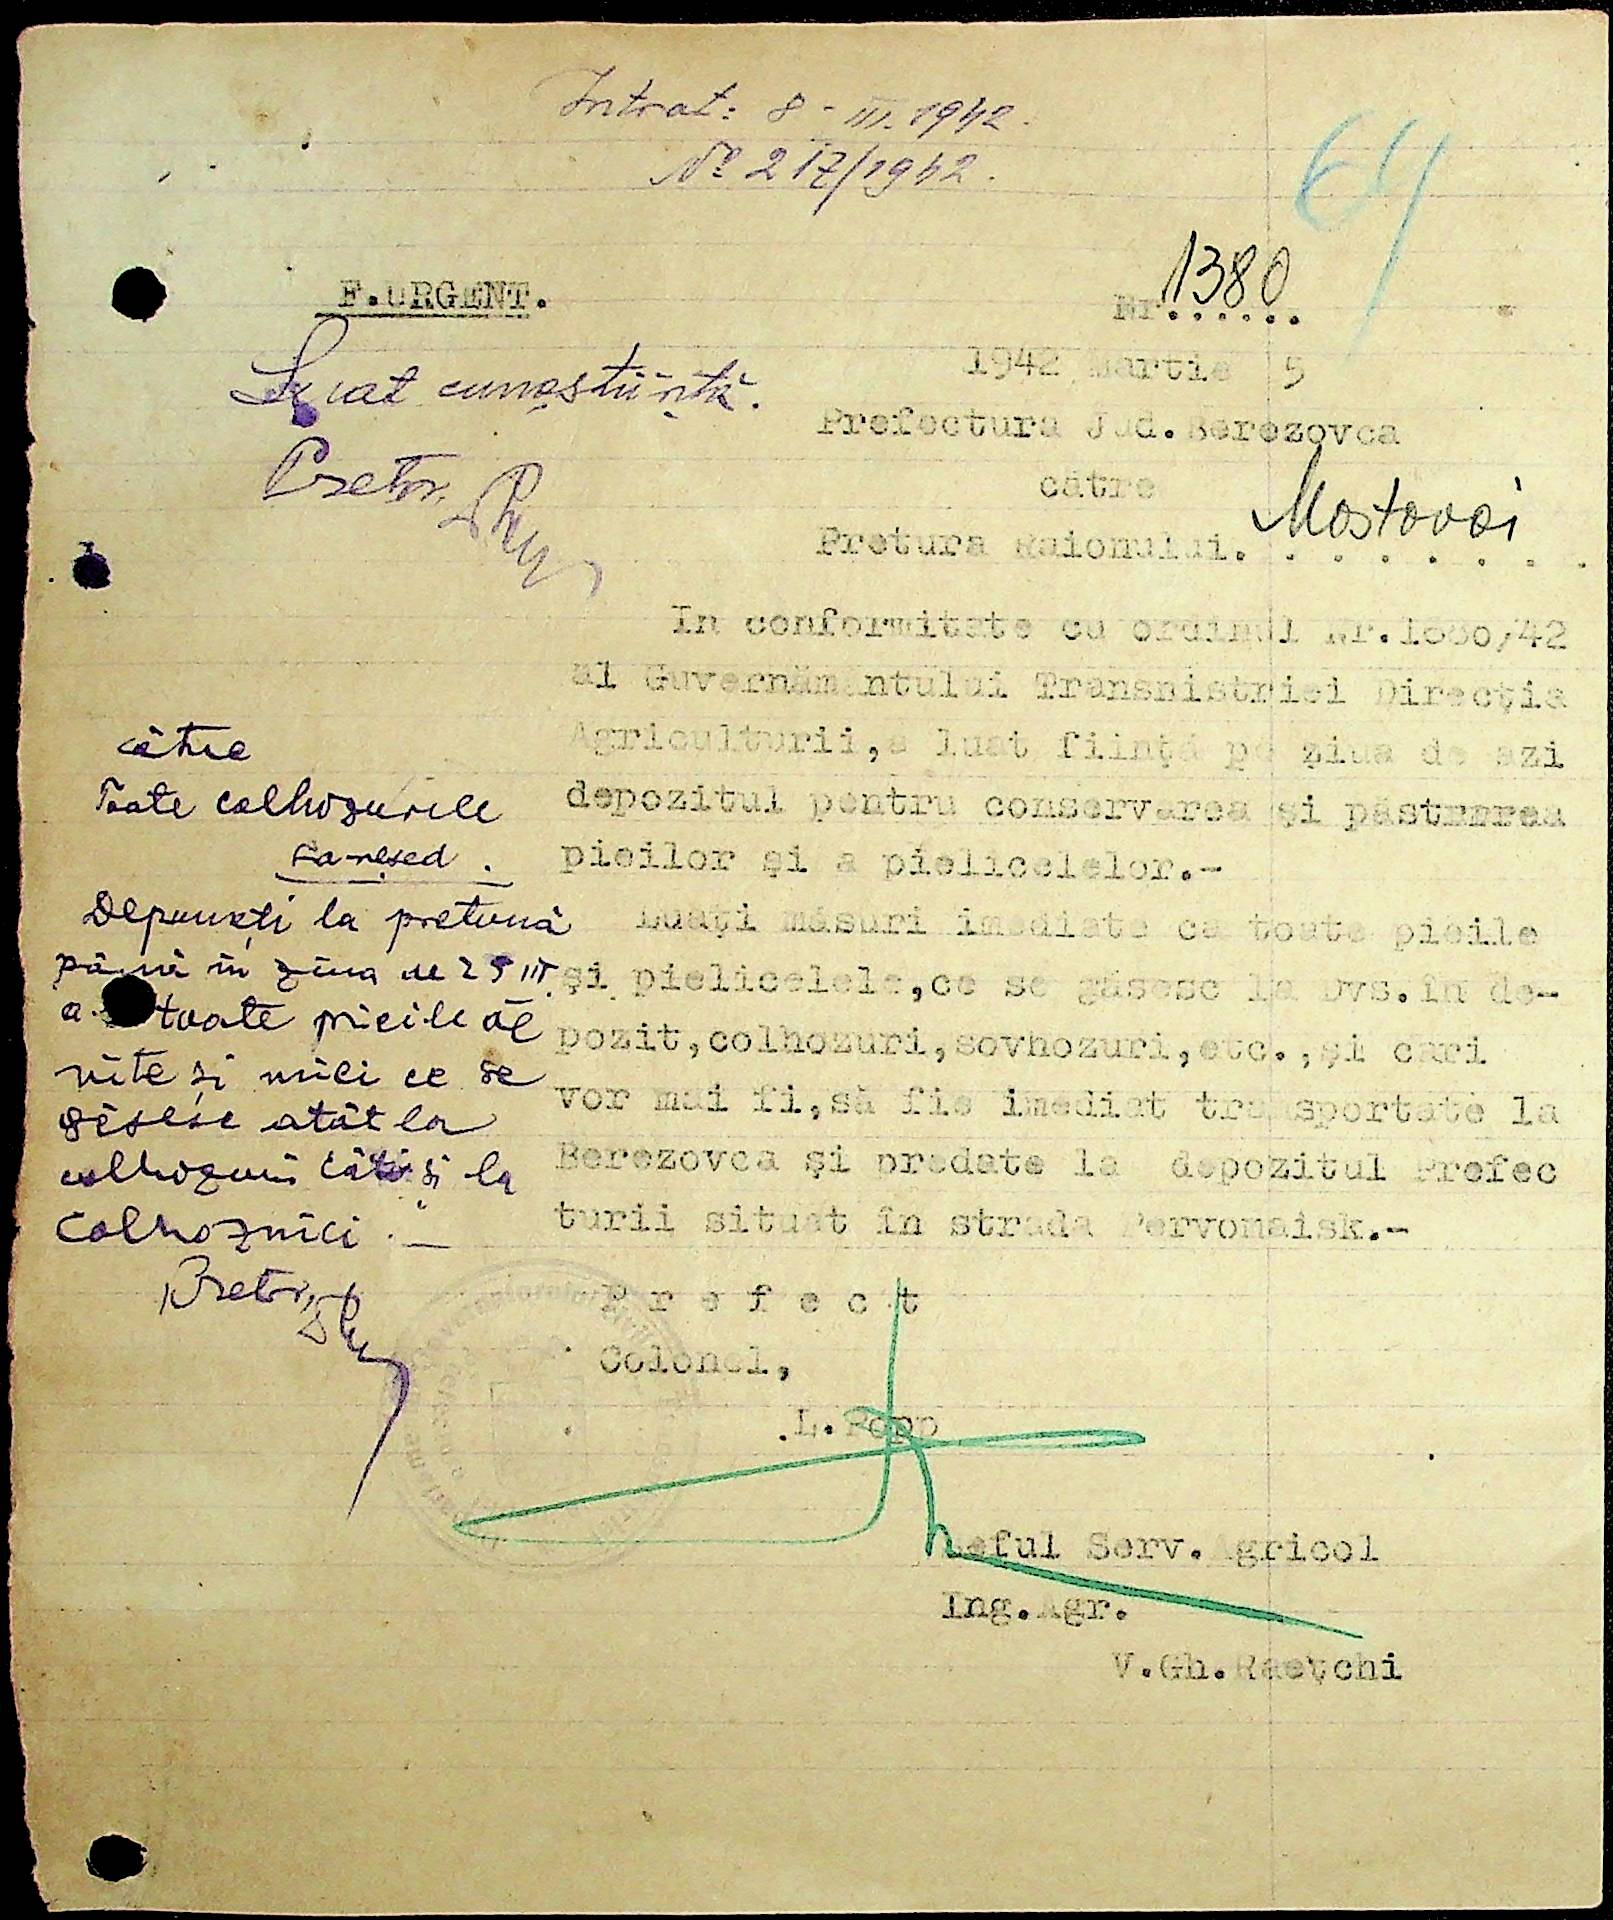 Intrat: 8 - III. 1942.
Nº 217/1942.
64
F.URGENT.
Nr.1380.....
1942 Martie 5
Prefectura Jud.Berezovca
către
Pretura Raionului. Mostovoi
S'a luat cunoștiință.
Pretor,
In conformitate cu ordinul Nr. /42
al Guvernământului Transnistriei Direcția
Agriculturii,a luat ființă pe ziua de azi
depozitul pentru conservarea și păstrarea
pieilor și a pielicelelor.-
Luați măsuri imediate ca toate pieile
și pielicelele,ce se găsesc la Dvs.în de-
pozit,colhozuri,sovhozuri,etc.,și cari
vor mai fi,să fie imediat transportate la
Berezovca și predate la depozitul Prefec
turii situat în strada Pervomaisk.-
P r e f e c t
Colonel,
L. Popp
Șeful Serv.Agricol
Ing.Agr.
V.Gh.Raețchi
către
Toate colhozurile
Depuneți la pretură
până în ziua de 25 III
a. toate pieile de
vite și miei ce se
găsesc atât la
colhozuri cât și la
Colhoznici. —
Pretor,